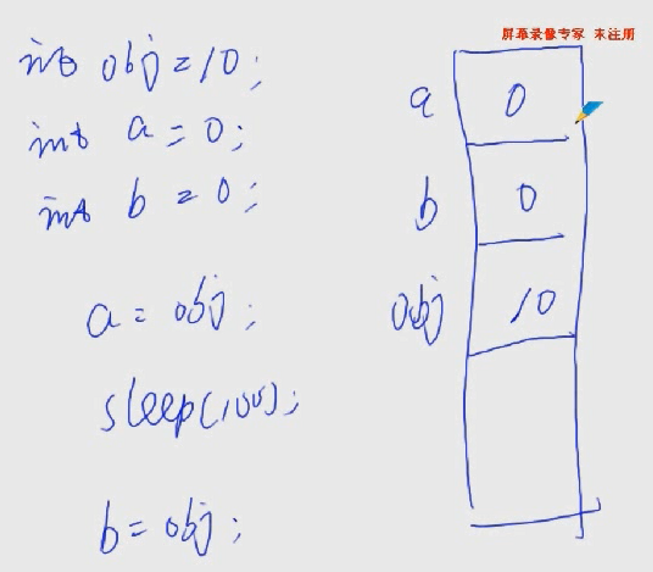 屏幕录像专家 未注册
int obj = 10;
int a = 0;
int b = 0;
a = obj;
sleep(100);
b = obj;
a 0
b 0
obj 10